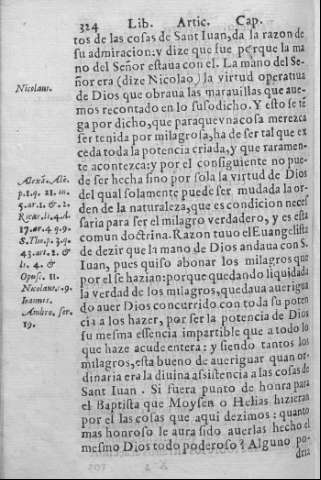 324 Lib. Artic. Cap.
tos de las cosas de Sant Iuan, da la razon de
su admiracion: y dize que fue porque la ma
no del Señor estaua con el. La mano del Se-
ñor era (dize Nicolao) la virtud operatiua
Nicolaus.
de Dios que obraua las marauillas que aue-
mos recontado en lo susodicho. Y esto se tẽ
ga por dicho, que para que vna cosa merezca
ser tenida por milagrosa, ha de ser tal que ex
ceda toda la potencia criada, y que raramen-
te acontezca: y por el consiguiente no pue-
de ser hecha sino por sola la virtud de Dios
del qual solamente puede ser mudada la or-
den de la naturaleza, que es condicion neces
saria para ser el milagro verdadero, y es esta
comun doctrina. Razon tuuo el Euangelista
de dezir que la mano de Dios andaua con S.
Iuan, pues quiso abonar los milagros que
por el se hazian: porque quedando liquidada
la verdad de los milagros, quedaua auerigua
do auer Dios concurrido con toda su poten
cia a los hazer, por ser la potencia de Dios
su mesma essencia impartible que a todo lo
que haze acude entera: y siendo tantos los
milagros, esta bueno de aueriguar quan or-
dinaria era la diuina assistencia a las cosas de
Sant Iuan. Si fuera punto de honra para
el Baptista que Moysen o Helias hizieran
por el las cosas que aqui dezimos: quanto
mas honroso le aura sido auerlas hecho el
mesmo Dios todo poderoso? Alguno po-
dria
Alexã. Ale.
p.2.q. 22. m.
5. ar. 1. & 2.
17. ar. 4 q. 9.
S. Tho. p. 3. q.
43. art. 2. &
li. 4. &
Opus. 11.
Nicolaus. 9.
Ioannes.
Ambro. ser.
19.